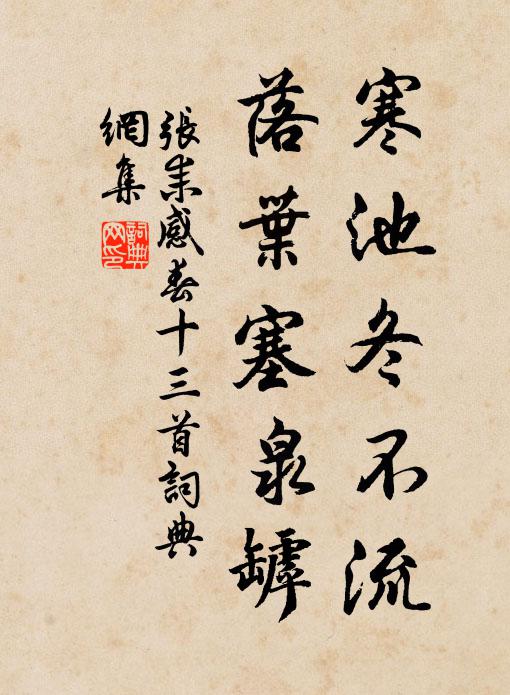 寒池冬不流
落葉塞泉罅
張耒感春十三首詞典
網集
詞典
網印